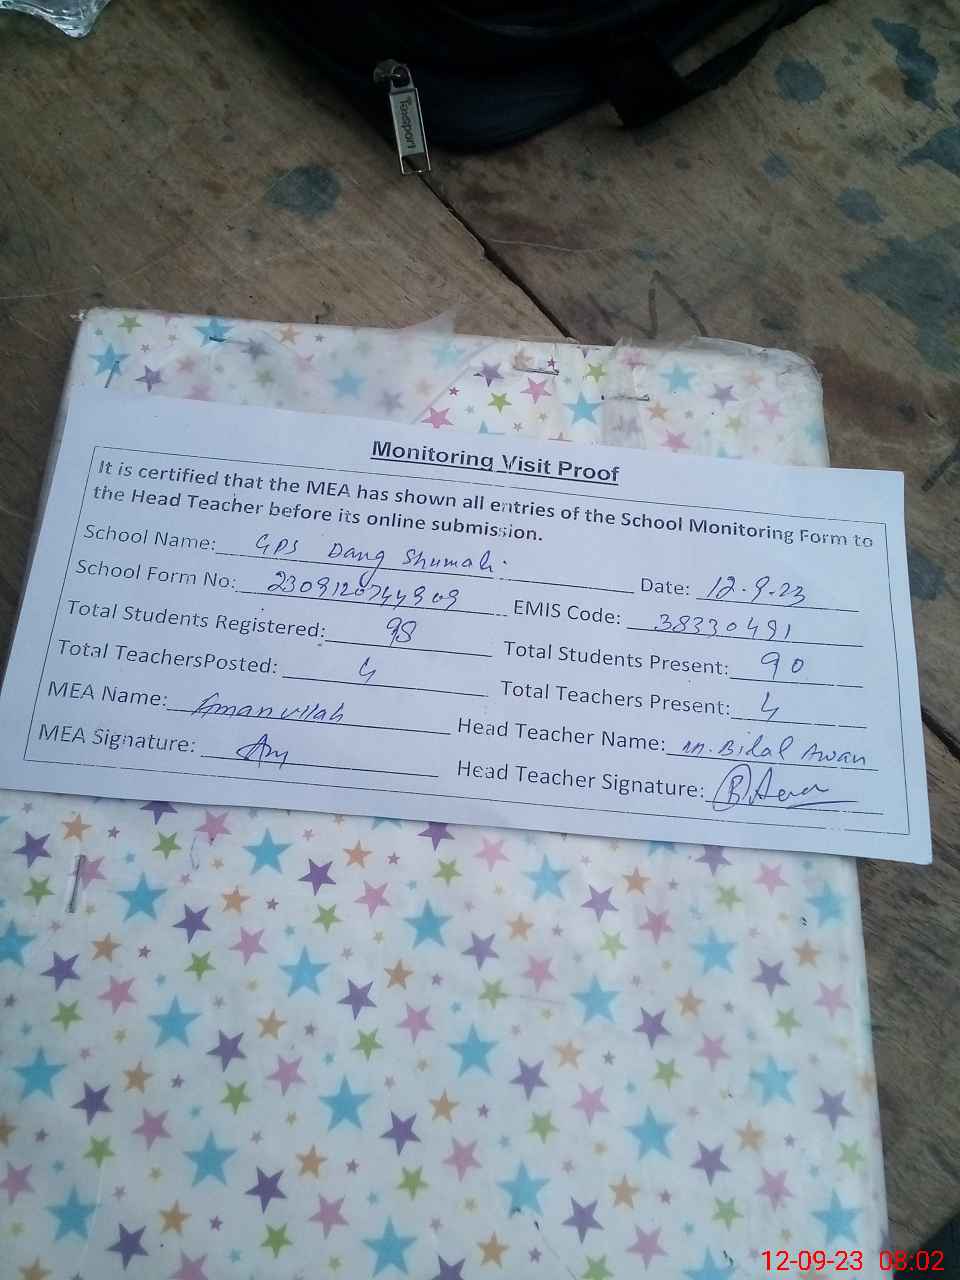 Teenport
Monitoring Visit Proof
It is certified that the MEA has shown all entries of the School Monitoring Form to
the Head Teacher before its online submission.
School Name: GPS Dang Shumali. Date: 12.9.23
School Form No: EMIS Code: 38330491
Total Students Registered: 98 Total Students Present: 90
Total TeachersPosted: 4 Total Teachers Present: 4
MEA Name: Amanullah Head Teacher Name: M. Bilal Awan
MEA Signature: Head Teacher Signature:
12-09-23 08:02